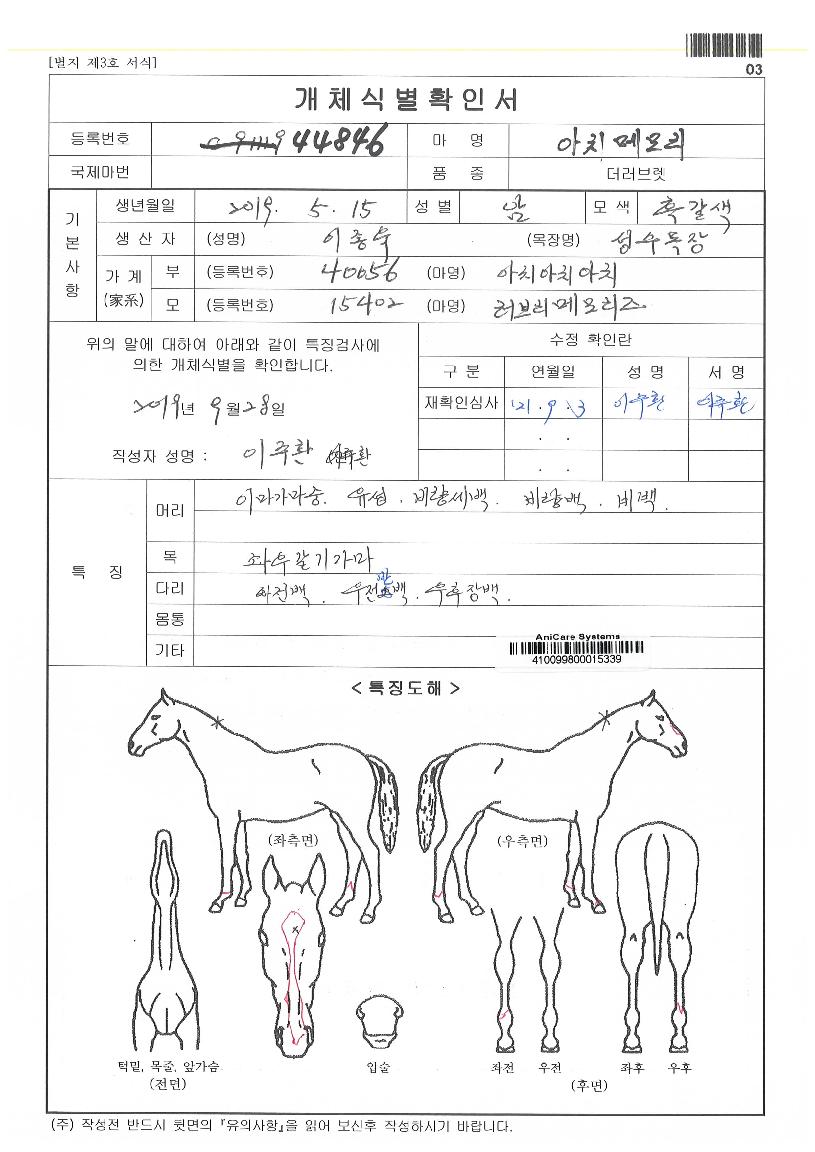 [별지 제3호 서식]
03
개체식별확인서
등록번호 44846 마 명 아치메모리
국제마번 품 종 더러브렛
기본사항
생년월일 2019. 5. 15 성 별 암 모 색 흑갈색
생 산 자 (성명) 이종욱 (목장명) 성수목장
가 계 (家系)
부 (등록번호) 40656 (마명) 아치아치아치
모 (등록번호) 15402 (마명) 러브리메모리즈
위의 말에 대하여 아래와 같이 특징검사에
의한 개체식별을 확인합니다.
2019년 9월 28일
작성자 성명 : 이주환 이주환
수정 확인란
구 분 연월일 성 명 서 명
재확인심사 '21. 9. 13 이주환 이주환
. .
. .
특 징
머리 이마가마중. 유성. 비량세백. 비량백. 비백.
목 좌우갈기가마
다리 좌전백. 우전반백. 우후장백.
몸통
기타
AniCare Systems
410099800015339
< 특징도해 >
(좌측면) (우측면)
턱밑, 목줄, 앞가슴 입술 좌전 우전 좌후 우후
(전면) (후면)
(주) 작성전 반드시 뒷면의 『유의사항』을 읽어 보신후 작성하시기 바랍니다.